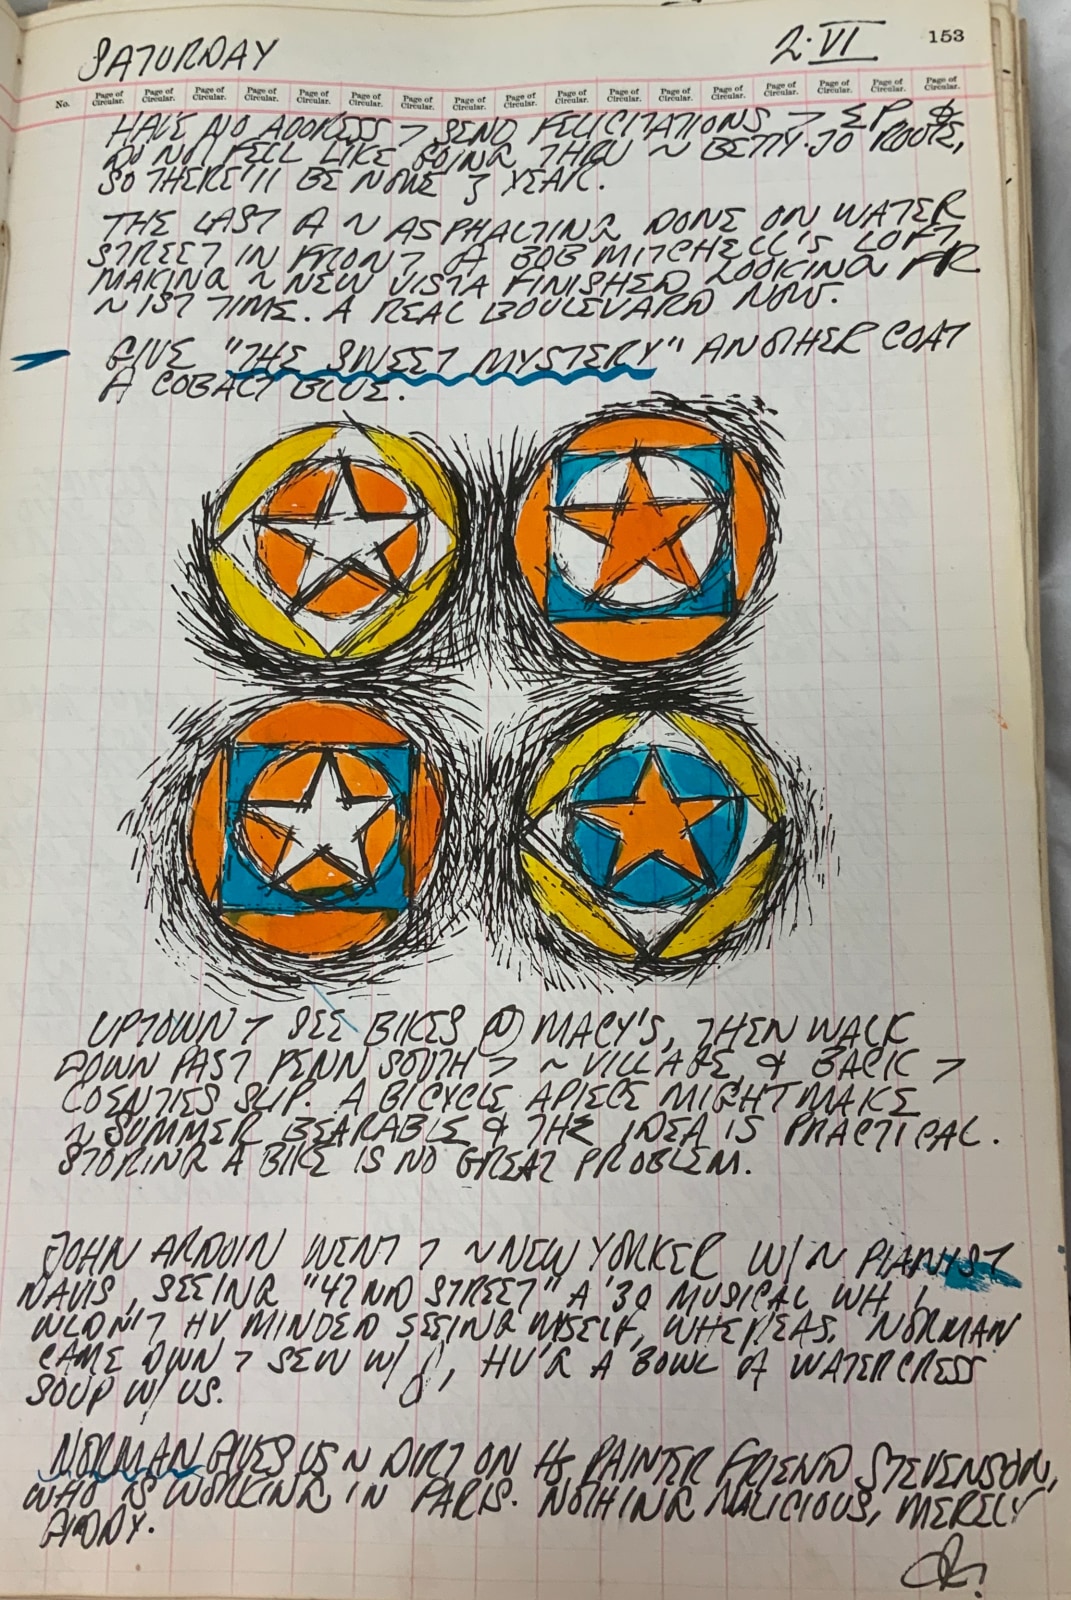 SATURDAY 2·VI 153
No. Page of Circular. Page of Circular. Page of Circular. Page of Circular. Page of Circular. Page of Circular. Page of Circular. Page of Circular. Page of Circular. Page of Circular. Page of Circular. Page of Circular. Page of Circular. Page of Circular. Page of Circular. Page of Circular. Page of Circular.
HAVE NO ADDRESS > SEND FELICITATIONS > EP &
DO NOT FEEL LIKE GOING THRU ~ BETTY·JO ROUTE,
SO THERE'll BE NONE YEAR.
THE LAST ~ ASPHALTING DONE ON WATER
STREET IN FRONT BOB MITCHELL'S LOFT
MAKING ~ NEW VISTA FINISHED LOOKING FR
~ 1ST TIME. A REAL BOULEVARD NOW.
GIVE "THE SWEET MYSTERY" ANOTHER COAT
COBALT BLUE.
UPTOWN > SEE BIKES @ MACY'S, THEN WALK
DOWN PAST PENN SOUTH > ~ VILLAGE & BACK >
COENTIES SLIP. A BICYCLE APIECE MIGHT MAKE
~ SUMMER BEARABLE & THE IDEA IS PRACTICAL.
STORING A BIKE IS NO GREAT PROBLEM.
JOHN ARDOIN WENT > ~ NEW YORKER W/ ~ PIANIST
DAVIS, SEEING "42ND STREET" A '30 MUSICAL WH I
WLDN'T HV MINDED SEEING MYSELF, WHEREAS, NORMAN
CAME DWN > SEW W/ HV'G A BOWL WATERCRESS
SOUP W/ US.
NORMAN GIVES US ~ DIRT ON PAINTER FRIEND STEVENSON,
WHO IS WORKING IN PARIS. NOTHING MALICIOUS, MERELY
GIDDY.